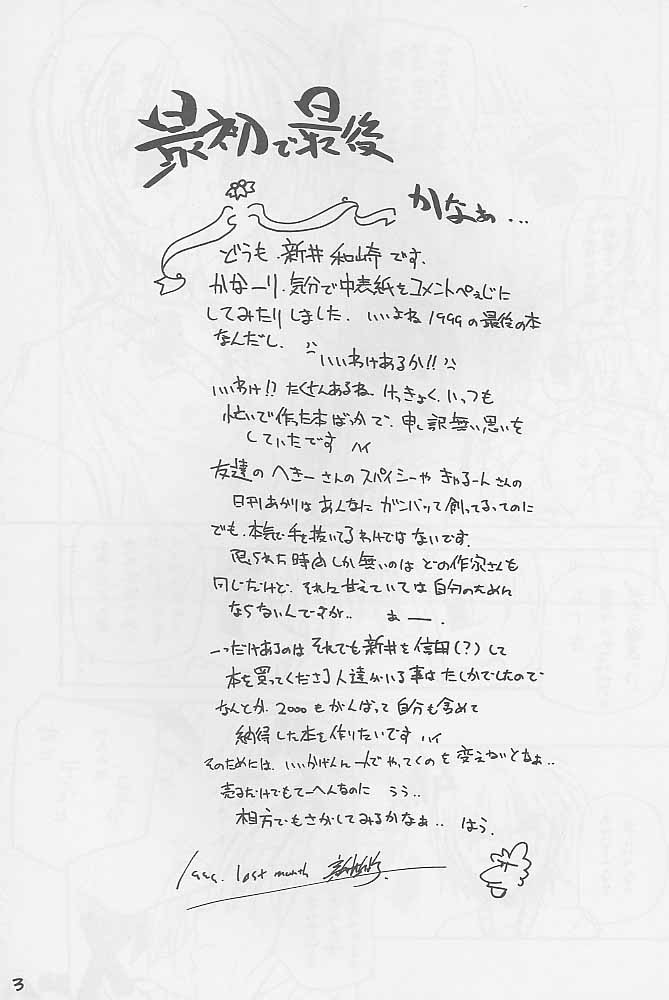 最初で最後
かなぁ…
どうも、新井和崎です。
かなーり、気分で中表紙をコメントぺぇじに
してみたりしました。いいよね1999の最後の本
なんだし、
いいわけあるか!!
いいわけ!? たくさんあるね、けっきょく、いっつも
忙いで作った本ばっかで、申し訳無い思いを
していたです ハイ
友達のへきーさんのスパイシーや きゃるーんさんの
日刊あかりは あんなに ガンバッて創ってるってのに
でも、本気で手を抜いてるわけではないです。
限られた時間しか無いのは どの作家さんも
同じだけど、それに甘えていては自分のために
ならないんですが.. ぁー.
一つだけあるのは それでも新井を信用(?)して
本を買ってくださる人達がいる事はたしかでしたので
なんとか、2000もがんばって自分も含めて
納得した本を作りたいです ハイ
そのためには、いいかげん一人でやってくのを変えないとなぁ..
売るだけでもてーへんなのに うぅ..
相方でもさがしてみるかなぁ.. はう.
1999. last month
3